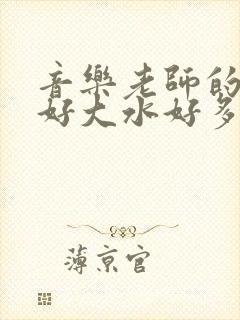 音樂老師的
好大水好多
薄京官